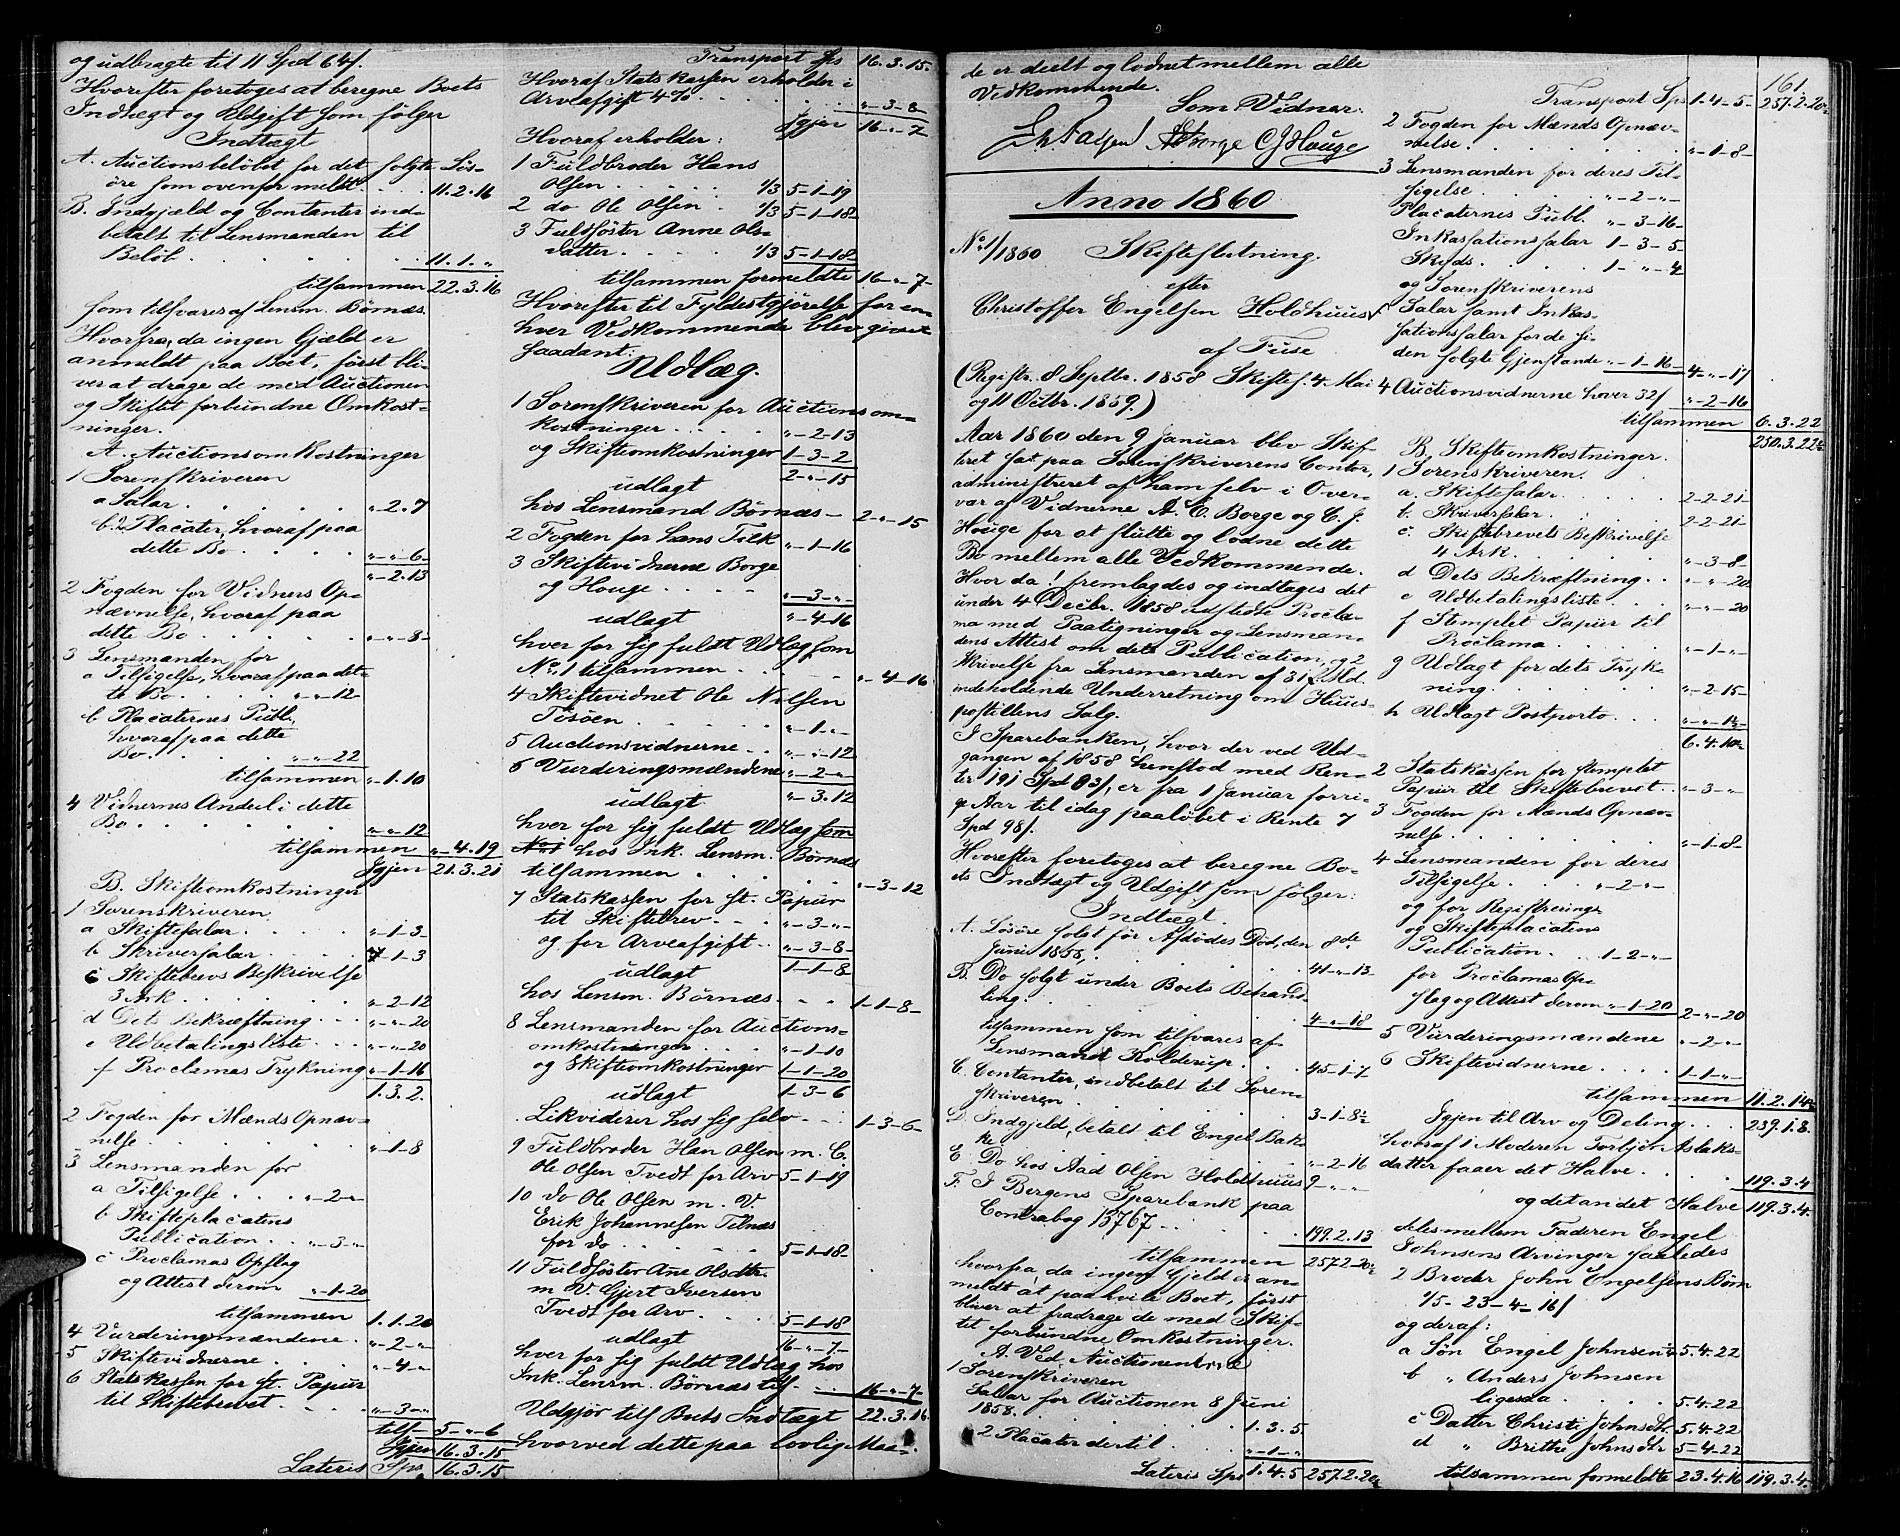 og udbragte til 11 Spd 64/.
Hvorefter foretoges at beregne Boets
Indtægt og Udgift som følger
Indtægt
A. Auctionsbeløbet for det solgte Løs-
øre som ovenfor meldt . . . 11.2.16
B. Indgjæld og Contanter ind-
betalt til Lensmanden til
Beløb . . . . . 11.1.„
tilsammen 22.3.16
som tilsvares af Lensm. Børnæs.
Hvorfra, da ingen Gjæld er
anmeldt paa Boet, først bli-
ver at drage de med Auctionen
og Skiftet forbundne Omkost-
ninger.
A. Auctionsomkostninger
1 Sorenskriveren
a Salar . . . . „-2.7
b 2 Placater, hvoraf paa
dette Bo . . . . „-„-6-
„-2.13
2 Fogden for Vidners Op-
nævnelse, hvoraf paa
dette Bo . . . . „-„-8-
3 Lensmanden for
a Tilsigelse, hvoraf paa det-
te Bo . . . „-„-12
b Placaternes Publ.,
hvoraf paa dette
Bo . . . . „-„-22
tilsammen „-1.10
4 Vidnernes Andel i dette
Bo . . . . . „-„-12
tilsammen „-4.19
Igjen 21.3.21
B. Skifteomkostninger
1 Sorenskriveren
a Skiftesalar . . . „-1-3
b Skriversalar . . . „-1-3
c Skiftebrevs Beskrivelse
3 Ark . . . . „-2-12
d Dets Bekræftning . . „-„-20
e Udbetalingsliste . . „-„-20
f Proclamas Trykning „-1-16
1.3.2.
2 Fogden for Mænds Opnæv-
nelse . . . . „-1-8
3 Lensmanden for
a Tilsigelse . . . „-2-„
b Skifteplacatens
Publication . . „-3-„
c Proclamas Opslag
og Attest derom „-1-20
tilsammen 1.1.20
4 Vurderingsmændene . „-2-„
5 Skiftevidnerne . . . „-4-„
6 Statskassen for st. Papiir
til Skiftebrevet . . . „-3-„
tils. 5-„-6
Igjen 16.3.15
Lateris Sps 16.3.15
Transport Sps 16.3.15.
Hvoraf Statskassen erholder i
Arveafgift 4% . . . . „-3-8
Igjen 16-„-7
Hvoraf erholder:
1 Fuldbroder Hans
Olsen . . . . 1/3 5-1-19
2 do Ole Olsen . 1/3 5-1-18
3 Fuldsøster Anne Ols-
datter . . . . 1/3 5-1-18
tilsammen formeldte 16-„-7-
Hvorefter til Fyldestgjørelse for en-
hver Vedkommende blev givet
saadant:
Udlæg.
1 Sorenskriveren for Auctionsom-
kostninger . . . . „-2-13
og Skifteomkostninger 1-3-2
udlagt 2-„-15
hos Lensmand Børnæs - 2-„-15
2 Fogden for Lens Tilk „-1-16
3 Skiftevidnerne Borge
og Houge . . . . „-3-„
udlagt „-4-16
hver for sig fuldt Udlæg som
No. 1 tilsammen . . . „-4-16.
4 Skiftevidnet Ole Nilsen
Tøsøen . . . . „-1-„
5 Auctionsvidnerne . . „-„-12
6 Vurderingsmændene „-2-„
udlagt „-3.12
hver for sig fuldt Udlæg som
No. 1 hos Ink. Lensm. Børnæs
tilsammen . . . . „-3-12
7 Statskassen for st. Papiir
til Skiftebrev . . . „-3-„
og for Arveafgift . . „-3-8
udlagt 1-1-8
hos Lensm. Børnæs . . . 1-1-8-
8 Lensmanden for Auctions-
omkostninger . . . „-1-10
og Skifteomkostninger 1-1-20
udlagt 1-3-6
Likviderer hos sig selv . . 1-3-6-
9 Fuldbroder Han Olsen m. C.
Ole Olsen Tvedt for Arv 5-1-19
10 do Ole Olsen m. V.
Erik Johannesen Tilnæs
for do . . . . . 5-1-18-
11 Fuldsøster Ane Olsdtr.
m V. Gjert Iversen
Tvedt for Arv . . . 5-1-18
udlagt 16-„-7-
hver for sig fuldt Udlæg hos
Ink. Lensm. Børnæs tils. . . 16-„-7-
Udgjør tils Boets Indtægt 22.3.16.
hvorved dette paa lovlig Maa-
de er deelt og lodnet mellem alle
Vedkommende.
Som Vidner:
A E Borge C J Houge
Anno 1860
No. 1/1860 Skifteslutning.
efter
Christoffer Engelsen Holdhuus
af Fuse
(Registr. 8 Septbr. 1858 Skiftes. 4 Mai
og 11 Octbr. 1859.)
Aar 1860 den 9 Januar blev Skif-
teret sat paa Sorenskriverens Contor,
administreret af ham selv i Over-
vær af Vidnerne A. E. Borge og C. J.
Houge for at slutte og lodne dette
Bo mellem alle Vedkommende.
Hvor da! fremlagdes og indtages det
under 4 Decbr. 1858 udstedte Procla-
ma med Paategninger og Lensman-
dens Attest om dets Publication, og 2
Skrivelse fra Lensmanden af 31 f. Md.
indeholdende Underretning om Huus-
postillens Salg.
I Sparebanken, hvor der ved Ud-
gangen af 1858 henstod med Ren-
ter 191 Spd 83/, er fra 1 Januar forri-
ge Aar til idag paaløbet i Rente 7
Spd 98/.
Hvorefter foretoges at beregne Bo-
ets Indtægt og Udgift som følger:
Indtægt.
A. Løsøre solgt før Afdødes Død, den 8de
Juni 1858, . . . . 41-„-13-
B. Do solgt under Boets Behand-
ling . . . . . 4-„-18
tilsammen som tilsvares af
Lensmand Kolderup . . . 45-1-7
C. Contanter, indbetalt til Soren-
skriveren . . . . 3-1-8½
D. Indgjeld, betalt til Engel Bak-
ke . . . . . „-2-16
E. Do hos Aad Olsen Holdhuus 9-„-„
F. I Bergens Sparebank paa
Contrabog 13767 . . . . 199.2.13
tilsammen 257.2.20½
hvorfra, da ingen Gjeld er an-
meldt at paahvile Boet, først
bliver at fradrage de med Skif-
tet forbundne Omkostninger.
A. Ved Auctionerne
1 Sorenskriveren
Salar for Auctionen 8 Juni
1858. . . . . 1.3.5
2 Placater dertil . . „-1-„
Lateris Sps 1.4.5 257.2.20½
161.
Transport Sps 1-4-5- 257.2.20½
2 Fogden for Mænds Opnæv-
nelse . . . . „-1-8-
3 Lensmanden for deres Til-
sigelse . . . „-2-„-
Placaternes Publ. „-3-16-
Inkassationssalar 1-3-5
Skyds . . . . 1-„-4
og Sorenskriverens
Salar samt Inkas-
sationssalar for de si-
den solgte Gjenstande „-1-16- 4-„-17
4 Auctionsvidnerne hver 32/ „-2-16
tilsammen 6.3.22
250.3.22½
B. Skifteomkostninger.
1 Sorenskriveren.
a. Skiftesalar . . . . 2-2-21-
b. Skriversalar . . . 2-2-21-
c. Skiftebrevets Beskrivelse
4 Ark . . . . „-3-8-
d Dets Bekræftning . . „-„-20
e Udbetalingsliste . . „-„-20
f Stemplet Papiir til
Proclama . . . „-1-„
g Udlagt for dets Tryk-
ning . . . . „-2-15-
h Udlagt Postporto . . . „-„-1½
6.4.10½
2 Statskassen for stemplet
Papiir til Skiftebrevet . „-3-„
3 Fogden for Mænds Opnæv-
nelse . . . . „-1-8-
4 Lensmanden for deres
Tilsigelse . . . „-2-„
og for Registreings
og Skifteplacatens
Publication . . 1-2-„
for Proclamas Op-
slag og Attest derom „-1-20 2-„-20
5 Vurderingsmændene „-2-„
6 Skiftevidnerne . . . 1-1-„-
tilsammen 11.2.14½
Igjen til Arv og Deling . . 239.1.8.
hvoraf 1 Moderen Torbjør Aslaks-
datter faaer det Halve . . 119.3.4
og det andet Halve 119.3.4.
deles mellem Faderen Engel
Johnsens Arvinger saaledes
2 Broder John Engelsens Børn
1/5 - 23-4-16/
og deraf:
a Søn Engel Johnsen 5.4.22
b „ Anders Johnsen
ligesaa . . . . 5.4.22
c Datter Christi Johnsdtr. 5.4.22
d „ Brithe Johnsdtr 5-4-22
tilsammen formeldte 23.4.16 119.3.4.